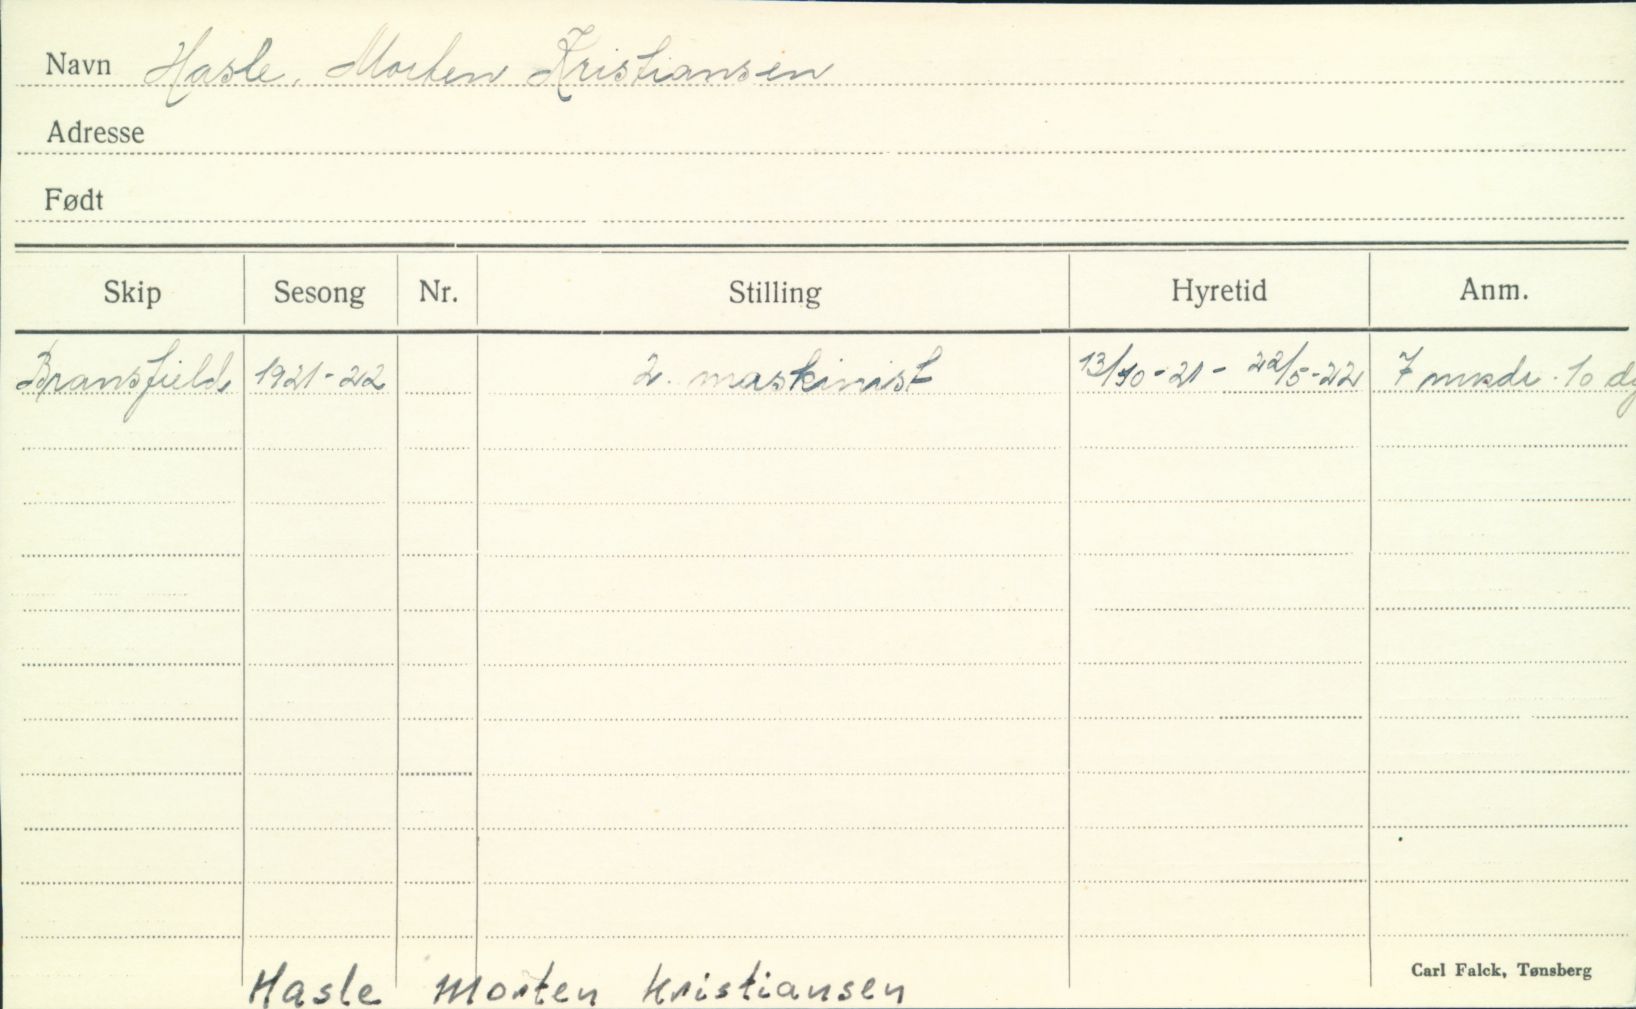 Navn Hasle, Morten Kristiansen
Adresse
Født
Skip Sesong Nr. Stilling Hyretid Anm.
Bransfield 1921-22 2. maskinist 13/10-21- 22/5-22 7 mndr. 10 dg
Carl Falck, Tønsberg
Hasle Morten Kristiansen